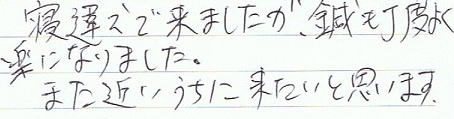 寝違えで来ましたが、鍼も丁度よく
楽になりました。
また近いうちに来たいと思います。